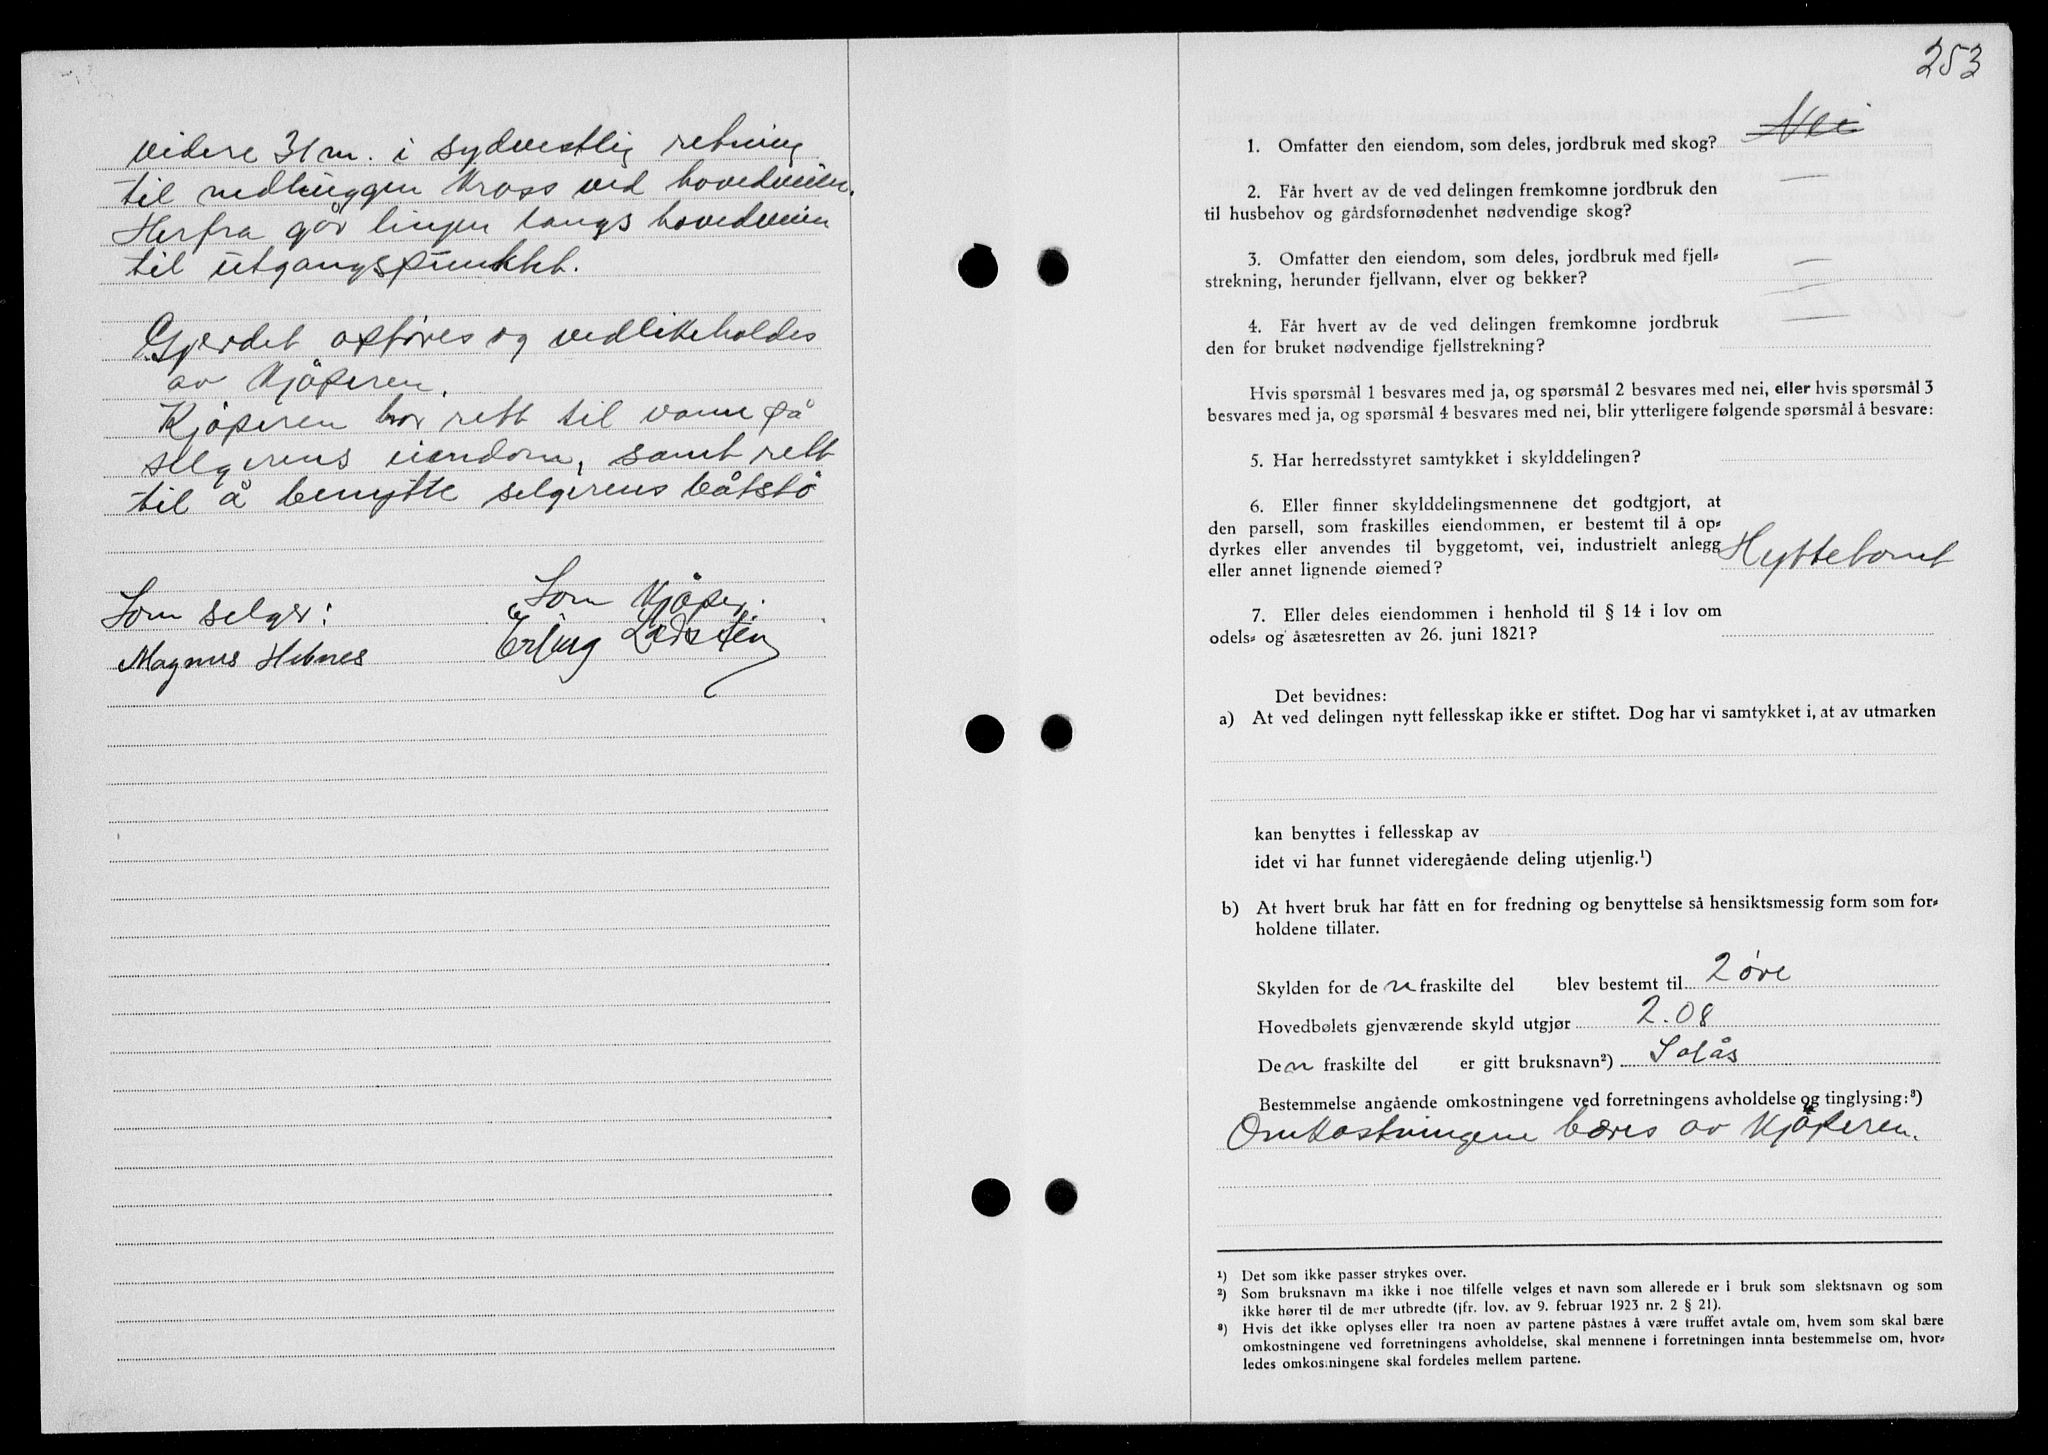 videre 31 m. i sydvestlig retning
til nedhuggen kross ved hovedveien.
Herfra går linjen langs hovedveien
til utgangspunktet.
Gjerdet opføres og vedlikeholdes
av kjøperen.
Kjøperen har rett til vann på
selgerens eiendom, samt rett
til å benytte selgerens båtstø
Som selger:
Som kjøper.
Magnus Hebnes
Erling
253
1. Omfatter den eiendom, som deles, jordbruk med skog? Nei
2. Får hvert av de ved delingen fremkomne jordbruk den
til husbehov og gårdsfornødenhet nødvendige skog? —
3. Omfatter den eiendom, som deles, jordbruk med fjell-
strekning, herunder fjellvann, elver og bekker? —
4. Får hvert av de ved delingen fremkomne jordbruk
den for bruket nødvendige fjellstrekning? —
Hvis spørsmål 1 besvares med ja, og spørsmål 2 besvares med nei, eller hvis spørsmål 3
besvares med ja, og spørsmål 4 besvares med nei, blir ytterligere følgende spørsmål å besvare:
5. Har herredsstyret samtykket i skylddelingen?
6. Eller finner skylddelingsmennene det godtgjort, at
den parsell, som fraskilles eiendommen, er bestemt til å op-
dyrkes eller anvendes til byggetomt, vei, industrielt anlegg
eller annet lignende øiemed? Hyttetomt
7. Eller deles eiendommen i henhold til § 14 i lov om
odels- og åsætesretten av 26. juni 1821?
Det bevidnes:
a) At ved delingen nytt fellesskap ikke er stiftet. Dog har vi samtykket i, at av utmarken
kan benyttes i fellesskap av
idet vi har funnet videregående deling utjenlig.¹)
b) At hvert bruk har fått en for fredning og benyttelse så hensiktsmessig form som for-
holdene tillater.
Skylden for den fraskilte del blev bestemt til 2 øre
Hovedbølets gjenværende skyld utgjør 2.08
Den fraskilte del er gitt bruksnavn²) Solås
Bestemmelse angående omkostningene ved forretningens avholdelse og tinglysing:³)
Omkostningene bæres av kjøperen.
¹) Det som ikke passer strykes over.
²) Som bruksnavn ma ikke i noe tilfelle velges et navn som allerede er i bruk som slektsnavn og som
ikke hører til de mer utbredte (jfr. lov. av 9. februar 1923 nr. 2 § 21).
³) Hvis det ikke oplyses eller fra noen av partene påstaes å være truffet avtale om, hvem som skal bære
omkostningene ved forretningens avholdelse, skal mennene i forretningen innta bestemmelse om, hvor-
ledes omkostningene skal fordeles mellem partene.